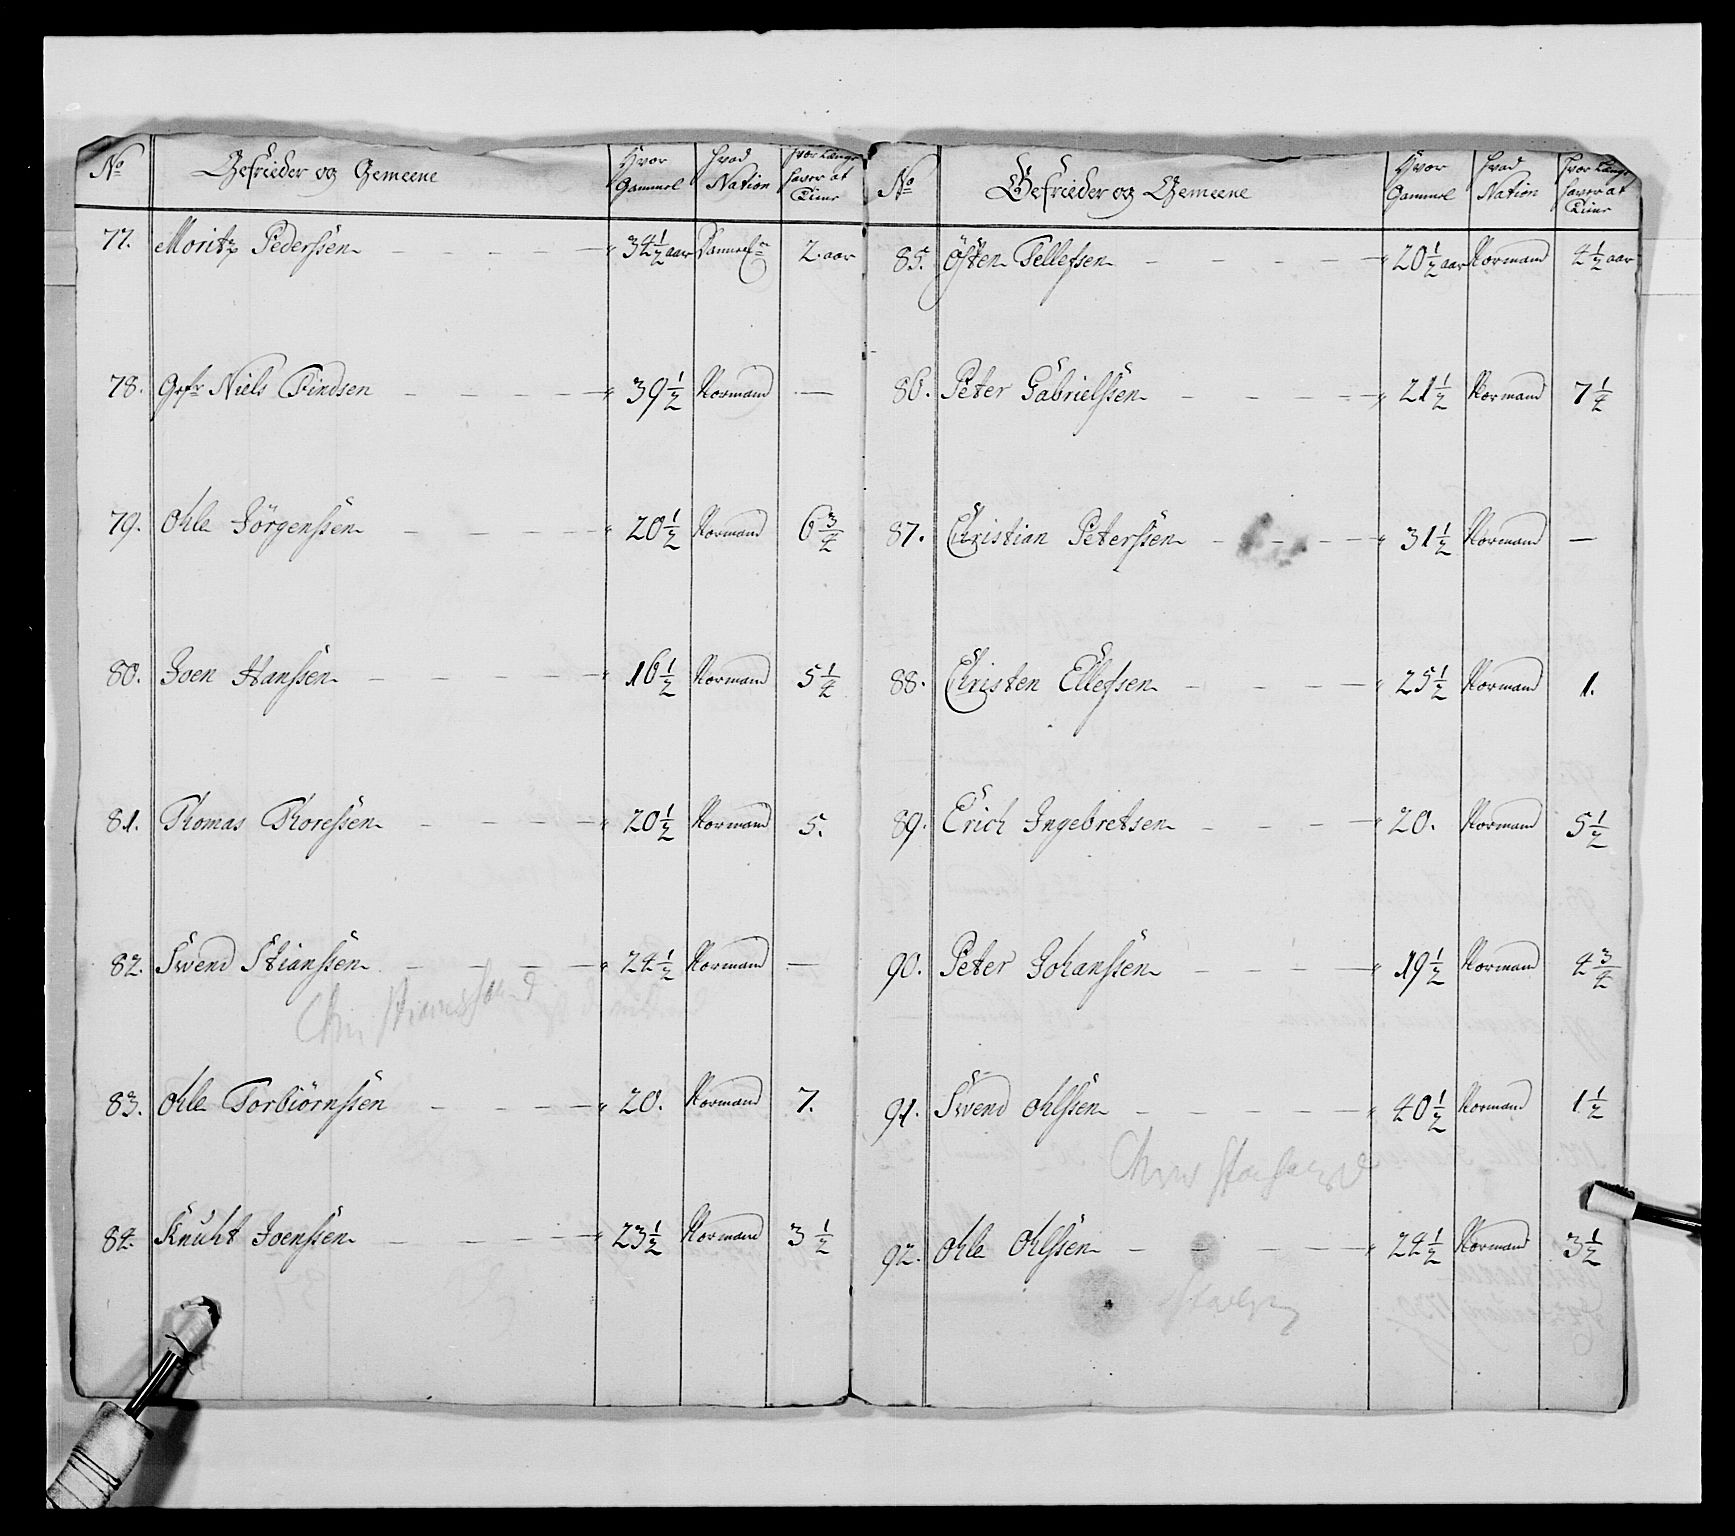 No Gefrieder og Gemeene Hvor Gammel Hvad Nation Hvor Længe haver at Tiene
77. Moritz Pederssen 34 1/2 aar 2. aar
78. Gefr Niels Tindsen 39 1/2 Normand —
79. Ohle Jörgenssen 20 1/2 Normand 6 3/4
80. Joen Hanssen 16 1/2 Normand 5 1/4
81. Thomas Thoressen 20 1/2 Normand 5.
82. Swend Stianssen 24 1/2 Normand —
83. Ohle Torbiörnssen 20. Normand 7.
84. Knuht Joenssen 23 1/2 Normand 3 1/2
No Gefrieder og Gemeene Hvor Gammel Hvad Nation Hvor Længe haver at Tiene
85. Östen Tellefsen 20 1/2 aar Normand 4 1/2 aar
86. Peter Gabrielssen 21 1/2 Normand 7 1/4
87. Christian Peterssen 31 1/2 Normand —
88. Christen Ellefsen 25 1/2 Normand 1.
89. Erich Ingebretsen 20. Normand 5 1/2
90. Peter Johanssen 19 1/2 Normand 4 3/4
91. Swend Ohlssen 40 1/2 Normand 1 1/2
92. Ohle Ohlssen 24 1/2 Normand 3 1/2